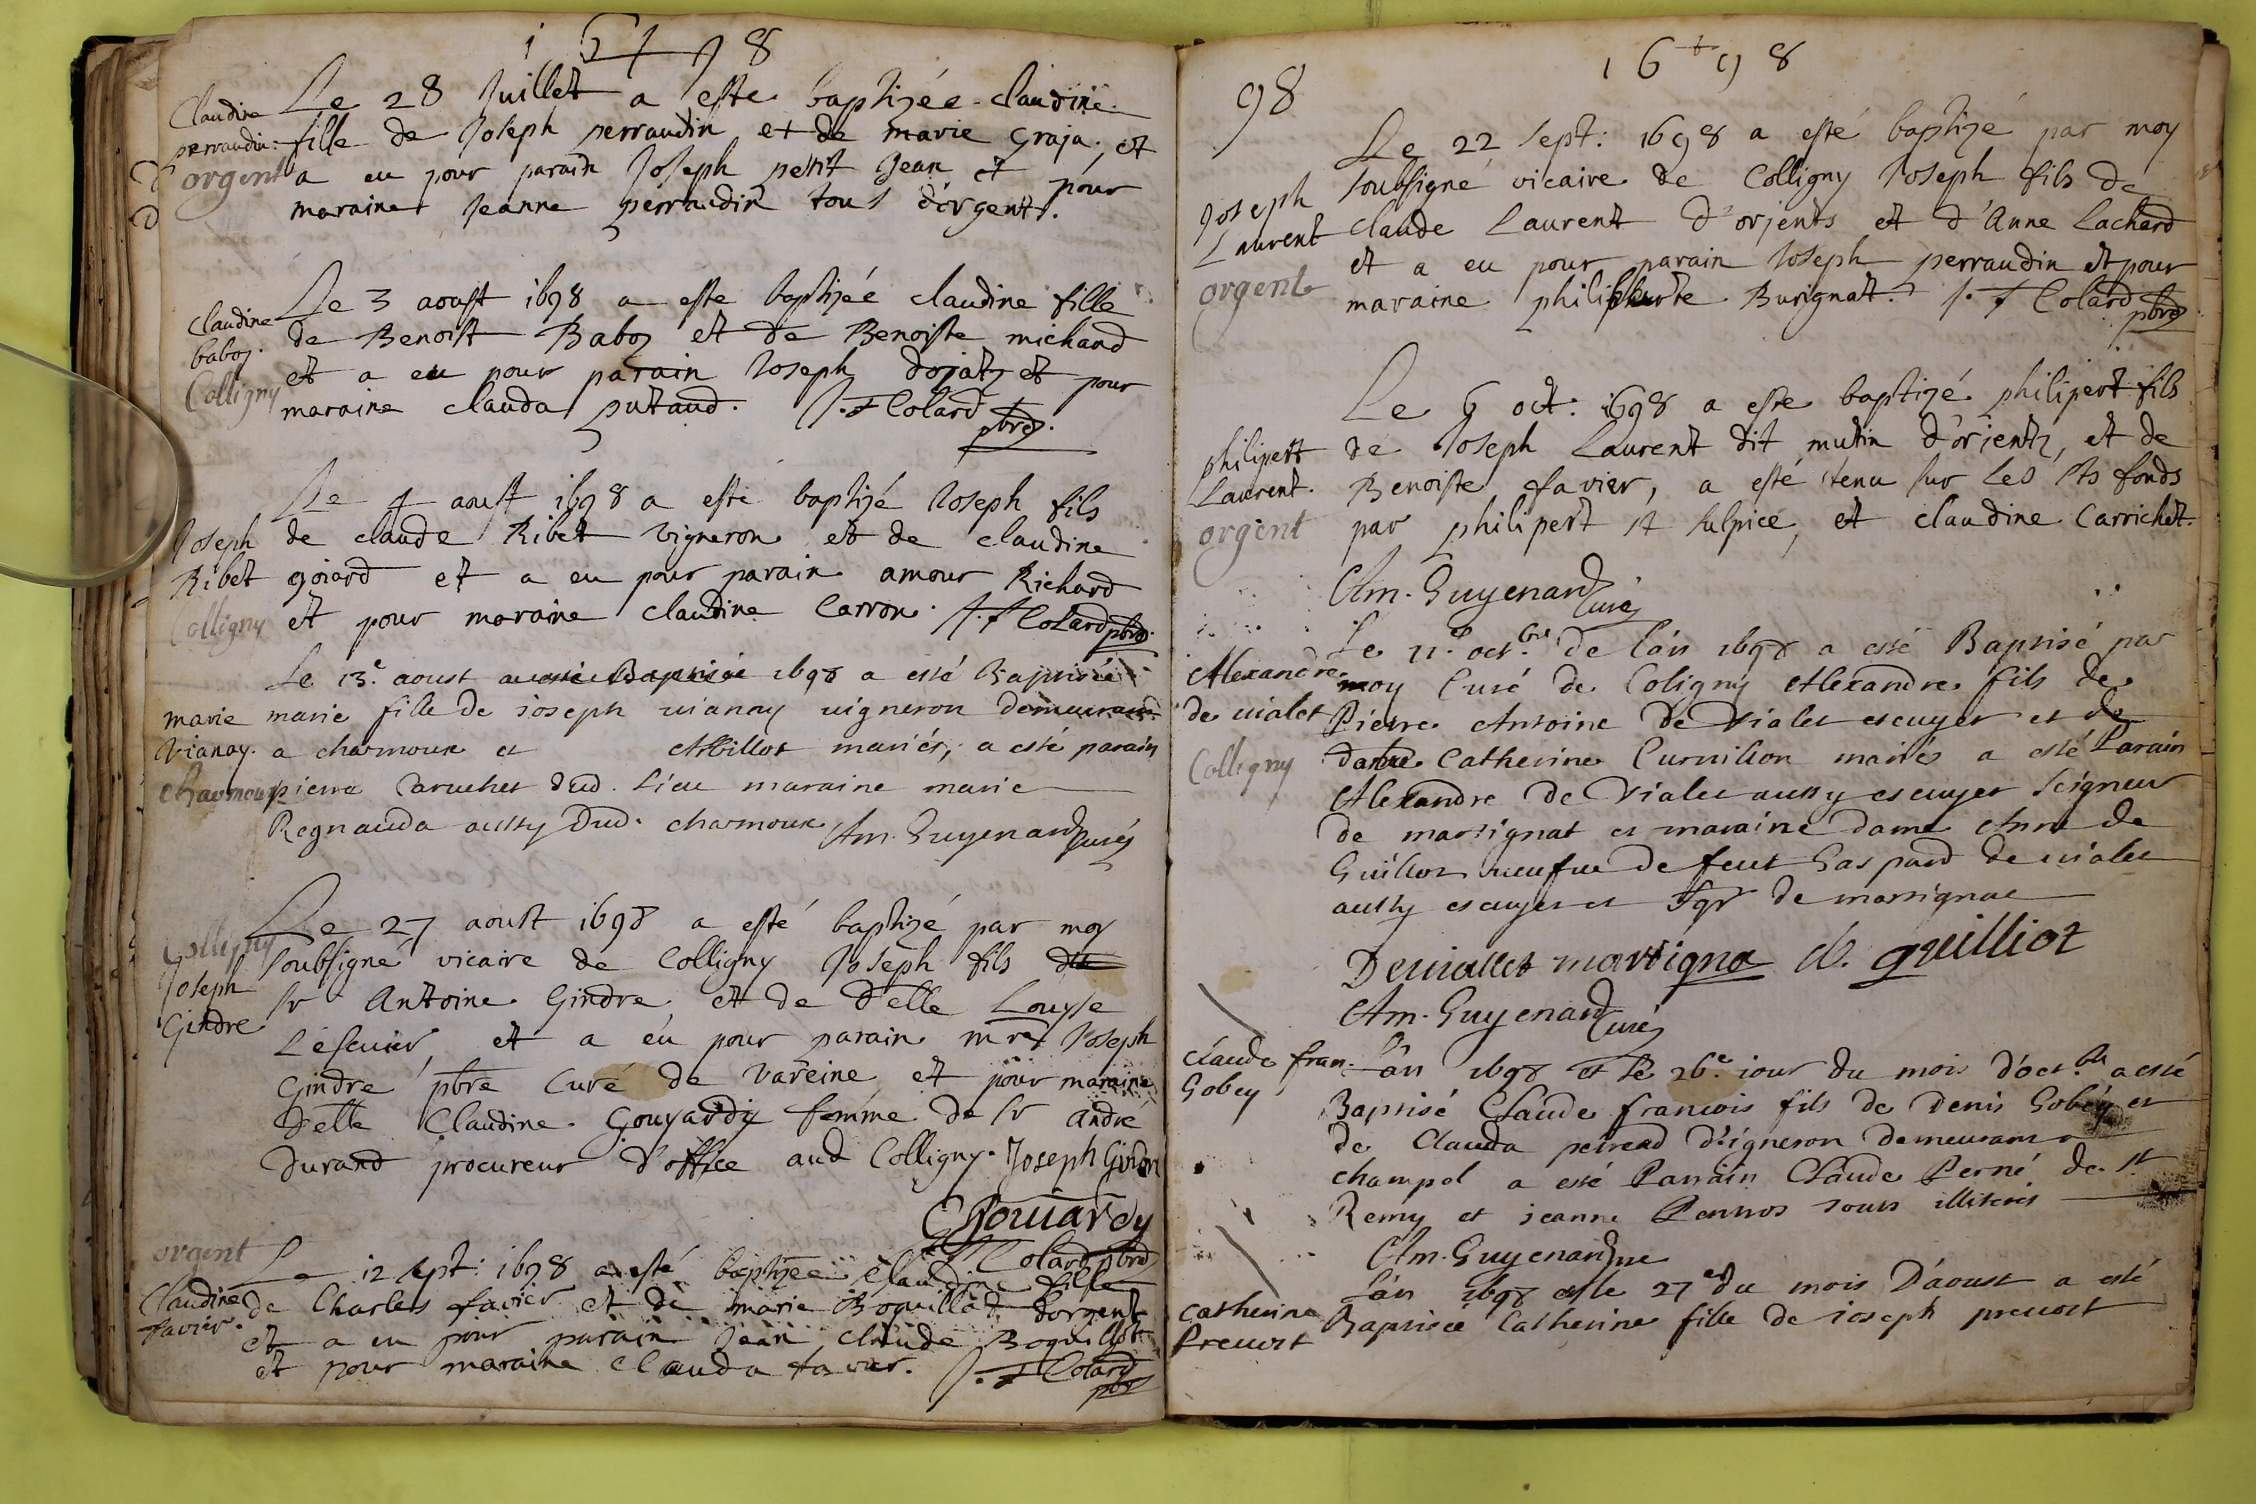 1698
Claudine
perraudin:
orgent
Le 28 Juillet a este baptizée claudine
fille de Joseph perraudin et de marie graja, et
a eu pour parain Joseph petit Jean et pour
maraine Jeanne perraudin tous d'orgent.
Claudine
baboz.
Colligny
Le 3 aoust 1698 a este baptizée claudine fille
de Benoist Baboz et de Benoiste michaud
et a eu pour parain Joseph dojatz et pour
maraine clauda putaud. J. f Colard pbre.
Joseph
Ribet
Colligny
Le 4 aoust 1698 a esté baptizé Joseph fils
de claude Ribet vigneron et de claudine
goiard et a eu pour parain amour Richard
et pour maraine claudine Carron. J. f Colard pbre.
marie
vianay.
Charmoux
Le 13.e aoust 1698 a esté Baptisée
marie fille de joseph vianay vigneron demeurant
a charmoux et Abillot mariés, a esté parain
pierre Carruchet dud. Lieu maraine marie
Regnauda aussy dud. charmoux Am. Guyenard Curé
Colligny
Joseph
Gindre
Le 27 aoust 1698 a esté baptizé par moy
soubsigné vicaire de Colligny Joseph fils
sr Antoine Gindre et de delle Louyse
Lescuier, et a éu pour parain mre Joseph
Gindre pbre Curé de vareine et pour maraine
delle Claudine Gouyardy femme de sr andré
durand procureur d'office aud Colligny. Joseph Gindre
C Gouiardy
J f Colard pbre
orgent
Claudine
favier.
Le 12 sept: 1698 a esté baptizée Claudine fille
de Charles favier et de marie Boquillod dorgent
et a eu pour parain Jean claude Boquillot
et pour maraine Clauda favier. J. f Colard
pbre
98
1698
Joseph
Laurent
orgent
Le 22 sept: 1698 a esté baptizé par moy
soubsigné vicaire de Colligny Joseph fils de
claude Laurent d'orjents et d'Anne Lachard
et a eu pour parain Joseph perraudin et pour
maraine philiberte Burignat. J. f Colard pbre
philipert
Laurent.
orgent
Le 6 oct: 1698 a este baptizé philipert fils
de Joseph Laurent dit mutin d'orjentz, et de
Benoiste favier, a esté tenu sur les sts fonds
par philipert st sulpice, et claudine Carrichet.
Am. Guyenard Curé
Alexandre
de vialet
Colligny
Le 11.e oct.bre de l'an 1698 a esté Baptisé par
moy Curé de Coligny Alexandre fils de
Pierre Antoine De Vialet escuyer et de
dame Catherine Curnillon mariés a esté Parain
Alexandre De Vialet aussy escuyer Seigneur
de martignat et maraine dame Anne de
Guillot veufue De feut Gaspard de vialet
aussy escuyer et Sgr de martignat
Deuiallet martigna A. guilliot
Am. Guyenard Curé
Claude fran:
Gobey
L'an 1698 et le 26.e iour du mois d'oct.bre a esté
Baptisé Claude francois fils de Denis Gobey et
de Clauda perrend Vigneron demeurant a
champel a esté Parrain Claude Perné de st
Remy et jeanne Pannos tous illiterés
Am. Guyenard Cure
Catherine
Preuost
L'an 1698 et le 27e du mois D'aoust a esté
Baptisée Catherine fille de joseph preuost